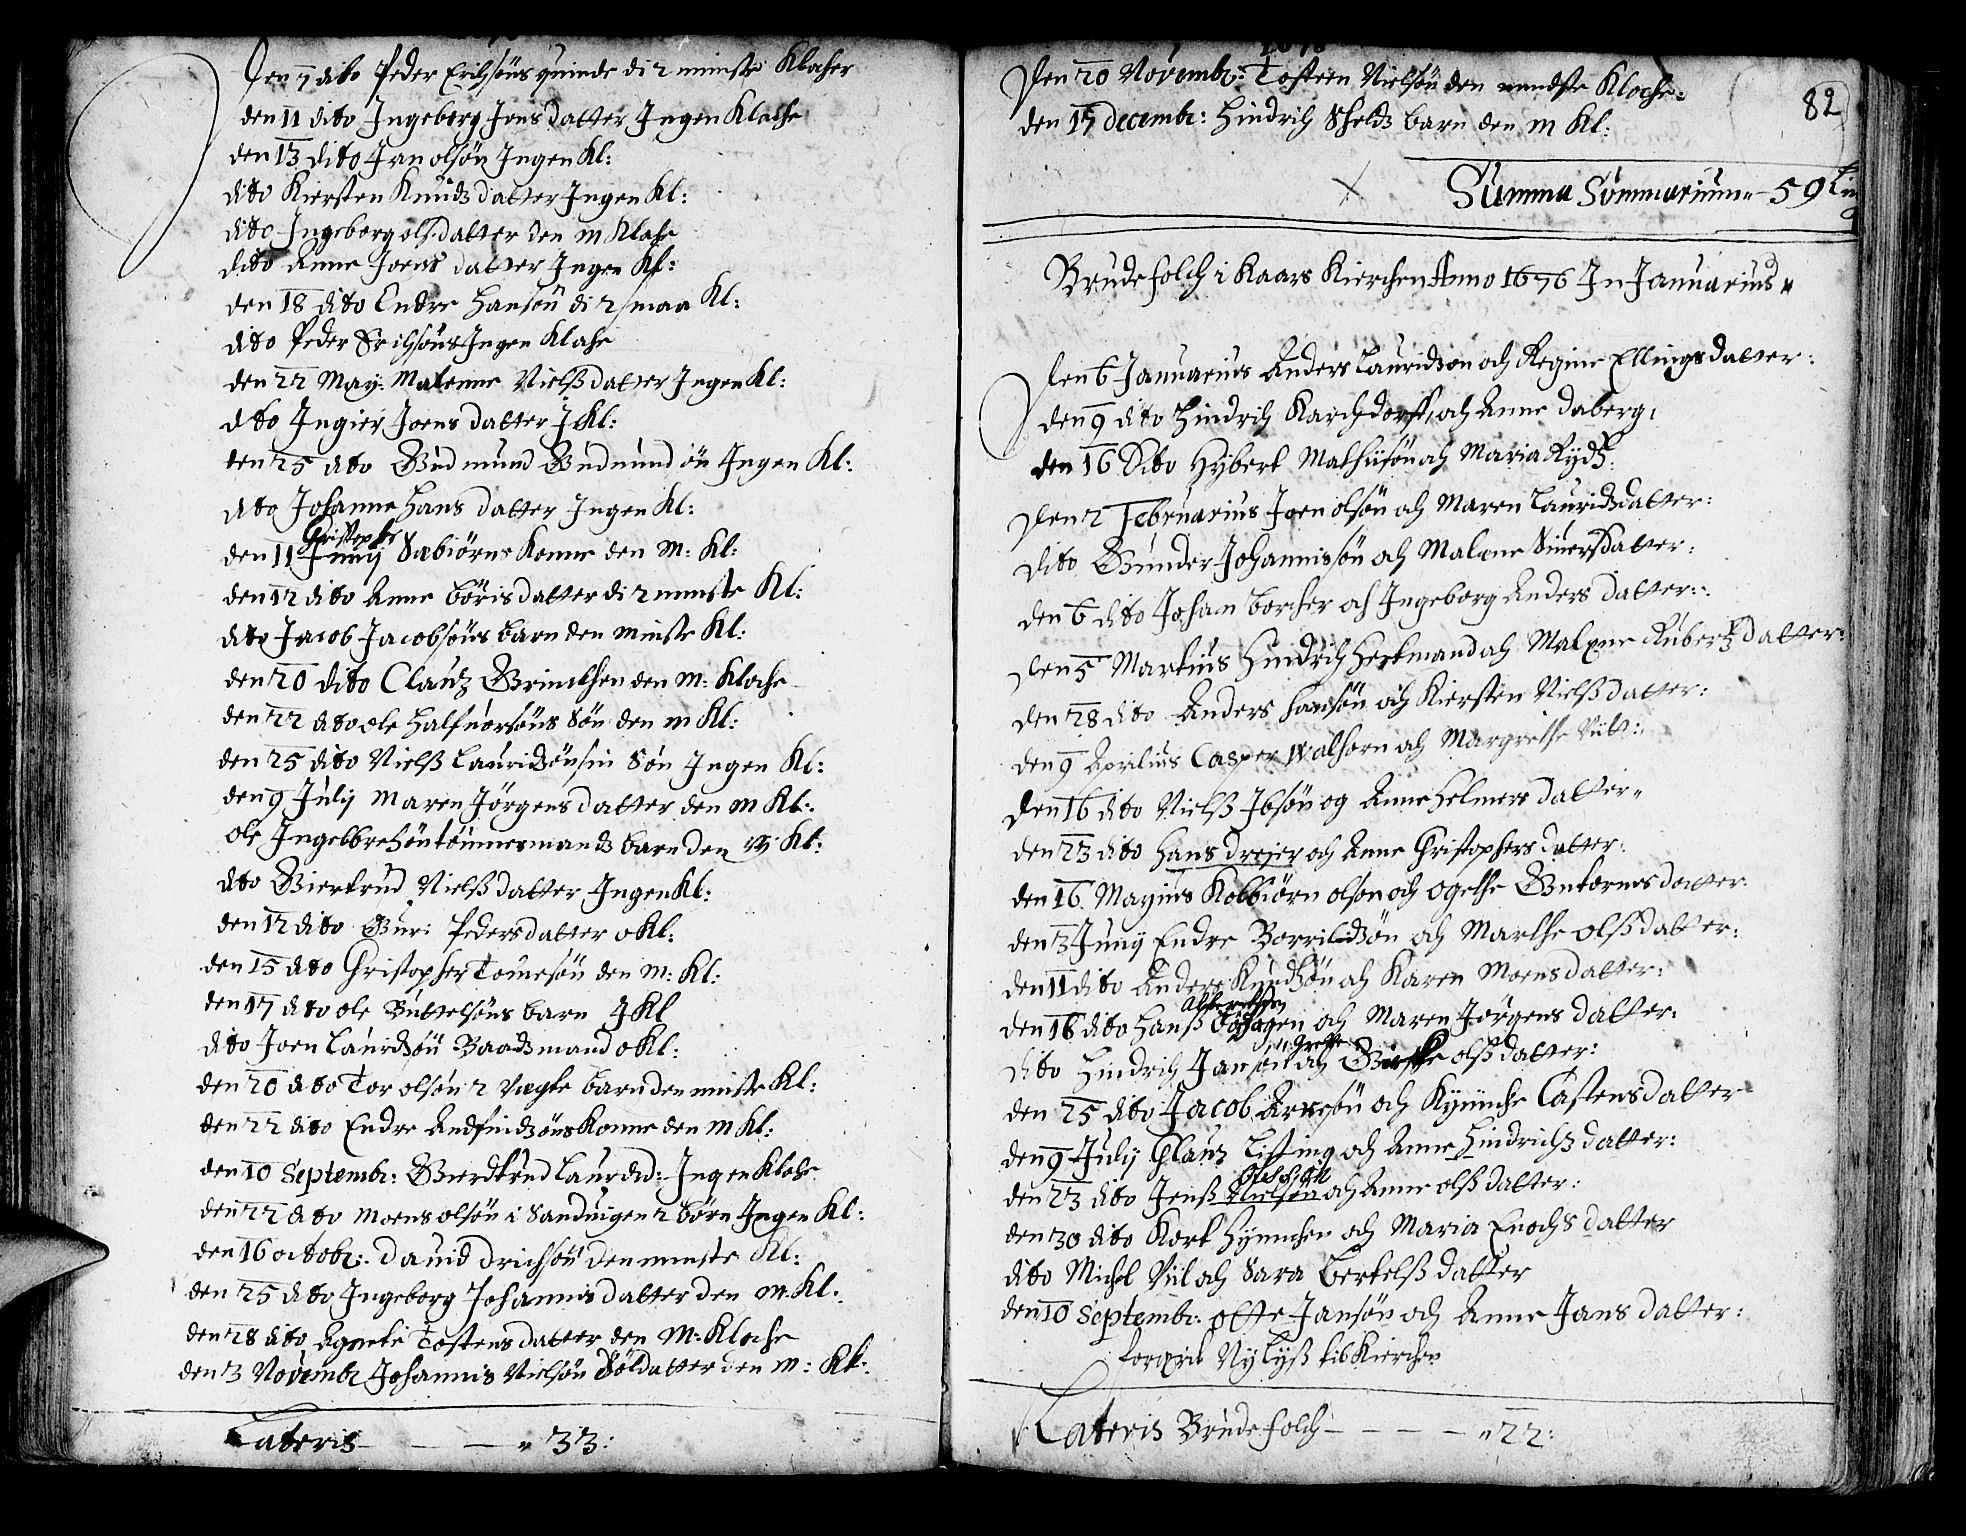 Den 7 dito Peder Erichsøns quinde di 2 minste Klocher
den 11 dito Ingeborg Jons datter Ingen Klache
den 13 dito Jan olsøn Ingen Kl:
dito Kiersten Knudz datter Ingen Kl:
dito Ingeborg olsdatter den m Klache
dito Anne Joens datter Ingen Kl:
den 18 dito Endre Hansøn di 2 smaa Kl:
dito Peder Erichsøns Ingen Klache
den 22 May: Malenne Nielß datter Ingen Kl:
dito Ingier Joens datter J Kl:
den 25 dito Gudmund Gudmundsøn Ingen Kl:
dito Johanne Hans datter Ingen Kl:
Christopher
den 11 Junij Sæbiørns Konne den M: Kl:
den 12 dito Anne Børis datter di 2 minste Kl:
dito Jacob Jacobsøns barn den minste Kl:
den 20 dito Clauz den M: Kloche
den 22 dito ole Halfuorsøns Søn den m Kl:
den 25 dito Nielß Lauridzøn sin Søn Ingen Kl:
den 9 Julij Maren Jørgens datter den M Kl:
ole tømmermandz barn den M Kl:
dito Giertrud Nielß datter Ingen Kl:
den 12 dito Guri Peders datter o Kl:
den 15 dito Christopher Tomesøn den M: Kl:
den 17 dito ole Buttelsøns barn J Kl
dito Joen Lauridzøn Baadzmand o Kl:
den 20 dito Tor olsøn 2 barn den minste Kl:
den 22 dito Endre Andfindzøns Konne den M Kl:
den 10 Septembr: Gierdtrud Laurdtd: Ingen Kloche
den 22 dito Moens olsøn i Sanduigen 2 børn Ingen Kl:
den 16 octobr: dauid drichsøn den minste Kl:
den 25 dito Ingeborg Johannis datter den M. Kl:
den 28 dito Agnete Tostens datter den M: Kloche
den 3 Novembr Johannis Nielsøn Soldatter den m: Kl:
Lateris - - " 33:
Den 20 Novembr: Tosteen Nielsøn den mindste Kloche:
den 15 decembr: Hindrich Skeldz barn den m Kl:
82
Summa Summarium " 59
Brudefolch i Kaars Kierchen Anno 1676 In Januarius
Den 6 Januarius Anders Lauridzon och Regine Ellings datter:
den 9 dito Hindrich Karchdorff, och Anne daberg:
den 16 Dito Hybert Mathisøn och Maria Rydß:
Den 2 Februarius Joen olsøn och Maren Lauridzdatter:
dito Gunder Johannissøn och Malene Siuersdatter:
den 6 dito Johan Borcher och Ingeborg Anders datter:
Den 5 Martius Hindrich Herkmand och Malene Rubertz datter:
den 28 dito Anders Hansøn och Kiersten Nielß datter:
den 9 Aprilius Casper Walhorn och Margrethe Vill:
den 16 dito Nielß Ibsøn og Anne Helmers datter"
den 23 dito Hans drejer och Anne Christophers datter:
den 16 Mayius Kolbiørn olsøn och ogethe datter
den 3 Junij Endre Borrildzøn och Marthe olß datter:
den 11 dito Anders Knudzøn och Karen Moens datter:
den 16 dito Hanß och Maren Jørgens datter:
Grette
dito Hindrich Jansøn och olß datter:
den 25 dito Jacob Arnesøn och Kyniche Castens datter
den 9 Julij Clauz Listing och Anne Hindrichz datter:
den 23 dito Jenß Nielsøn och Anne olß datter:
den 30 dito Kort Hynichen och Maria Enochs datter
dito Michel Viil och Sara Bertelß datter
den 10 Septembr: olffe Jansøn och Anne Jans datter:
Nylyß til Kierchen
Lateris Brudefolch - - - - " 22: